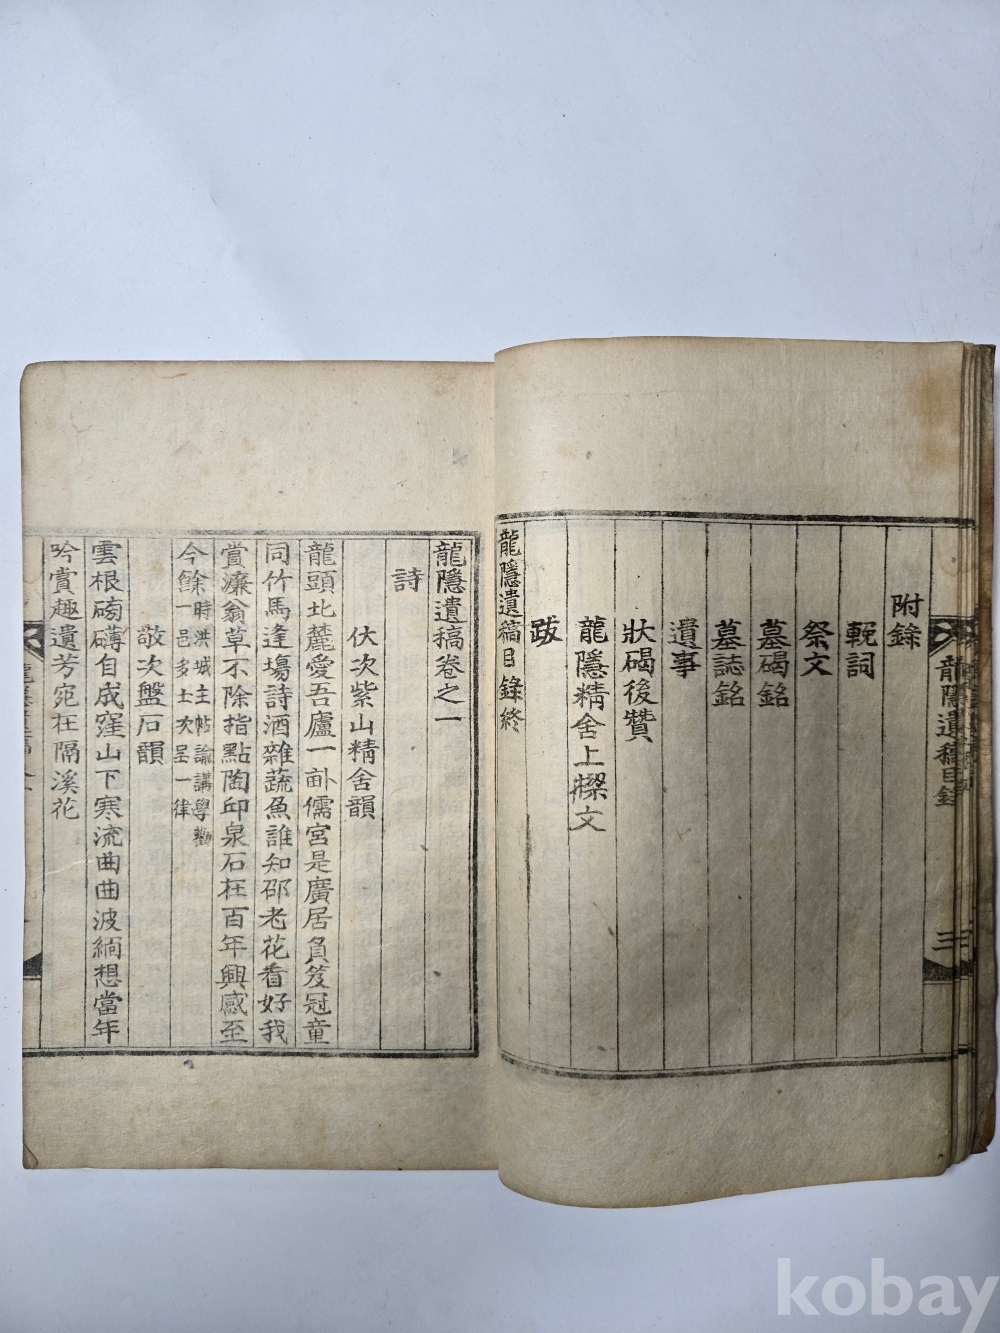 附錄
輓詞
祭文
墓碣銘
墓誌銘
遺事
狀碣後贊
龍隱精舍上樑文
跋
龍隱遺稿目錄終
龍隱遺稿目錄
三
龍隱遺稿卷之一
詩
伏次紫山精舍韻
龍頭北麓愛吾廬一畝儒宮是廣居負笈冠童
同竹馬逢場詩酒雜蔬魚誰知邵老花看好我
賞濂翁草不除指點陶邱泉石在百年興感至
今餘時洪城主帖論講學勸
一邑多士次呈一律
敬次盤石韻
雲根磅礴自成窪山下寒流曲曲波緬想當年
吟賞趣遺芳宛在隔溪花
kobay